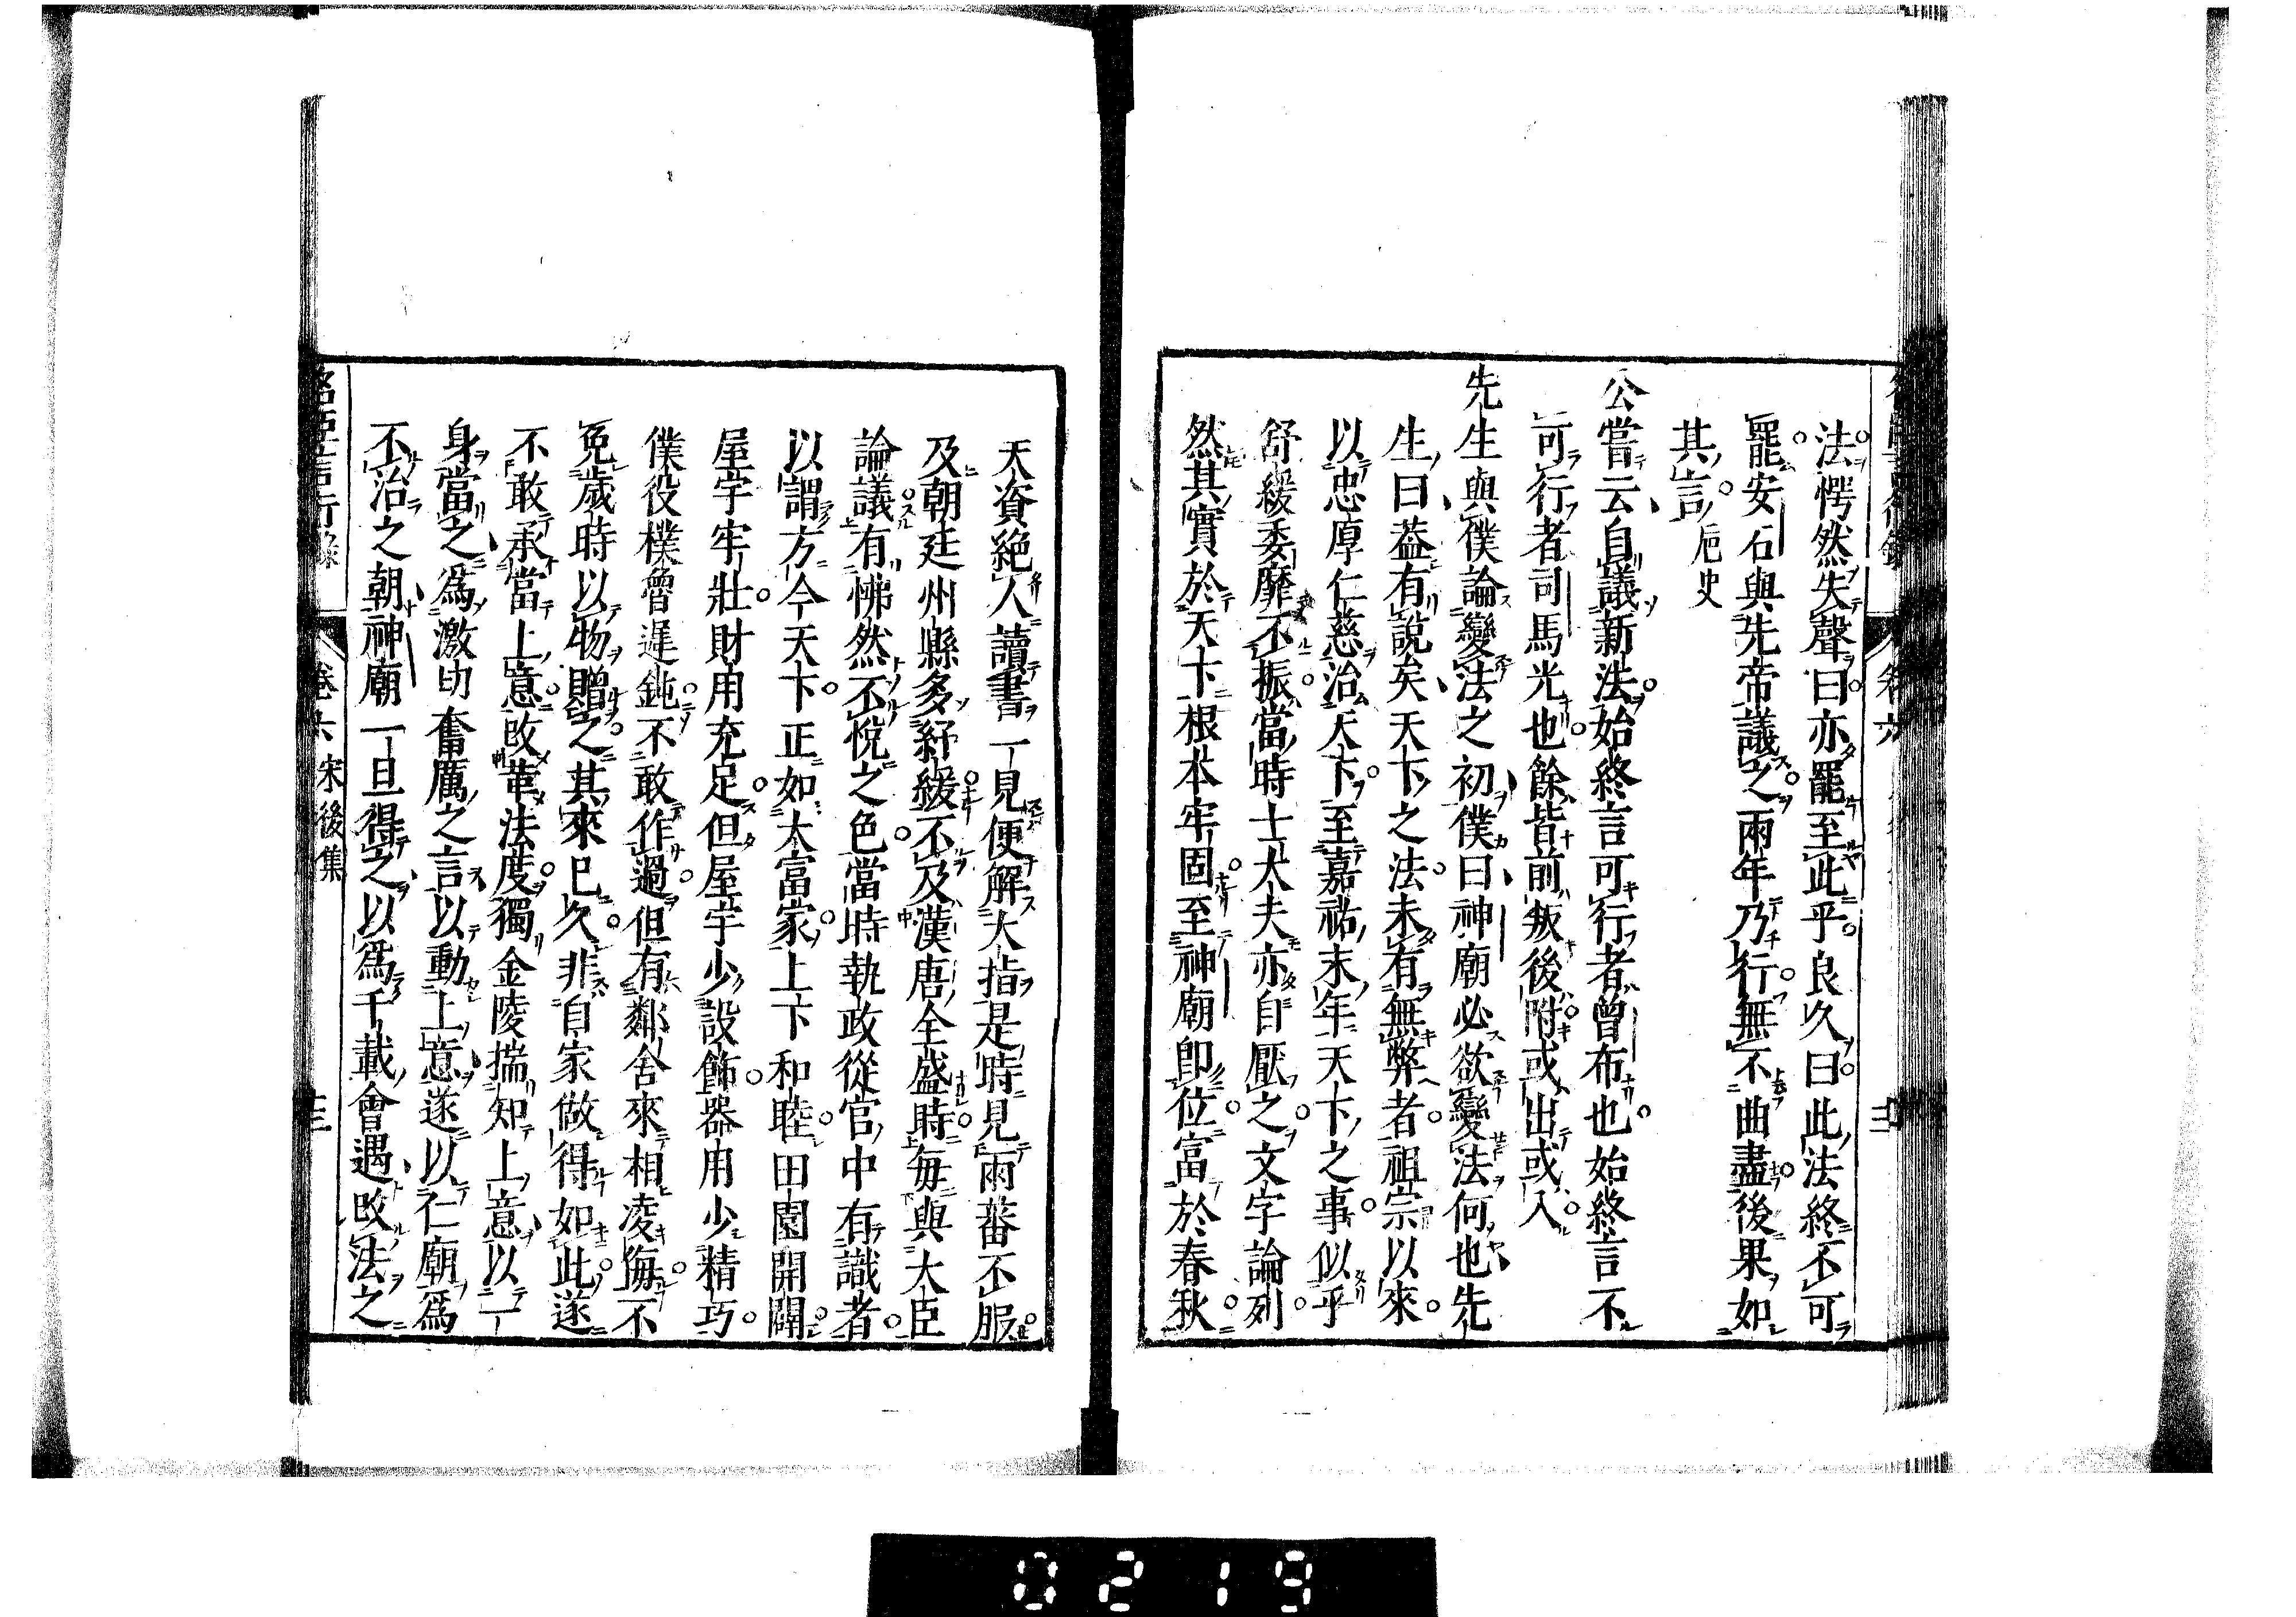 法愕然失聲曰亦罷至此乎良久曰此法終不可
罷安石與先帝議之兩年乃行無不曲盡後果如
其言 巵史
公嘗云自議新法始終言可行者曾布也始終言不
可行者司馬光也餘皆前叛後附或出或入
先生與僕論變法之初僕曰神廟必欲變法何也先
生曰蓋有說矣天下之法未有無弊者祖宗以來
以忠厚仁慈治天下至嘉祐末年天下之事似乎
舒緩委靡不振當時士大夫亦自厭之文字論列
然其實於天下根本牢固至神廟即位富於春秋
天資絶人讀書一見便解大指是時見兩蕃不服
及朝廷州縣多紓緩不及漢唐全盛時每與大臣
論議有怫然不悅之色當時執政從官中有識者
以謂方今天下正如大富家上下和睦田園開闢
屋宇牢壯財用充足但屋宇少設飾器用少精巧
僕役樸魯遲鈍不敢作過但有鄰舍來相凌侮不
免歲時以物贈之其來已久非自家做得如此遂
不敢承當上意改革法度獨金陵揣知上意以一
身當之爲激切奮厲之言以動上意遂以仁廟爲
不治之朝神廟一旦得之以爲千載會遇改法之
名臣言行錄 卷六 宋後集 十三
0219